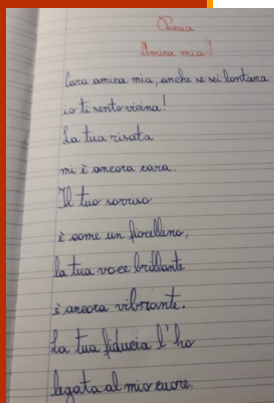 Poesia
Amica mia!
Cara amica mia, anche se sei lontana
io ti sento vicina!
La tua risata
mi è ancora cara.
Il tuo sorriso
è come un fiorellino,
la tua voce brillante
è ancora vibrante.
La tua fiducia l'ho
legata al mio cuore.